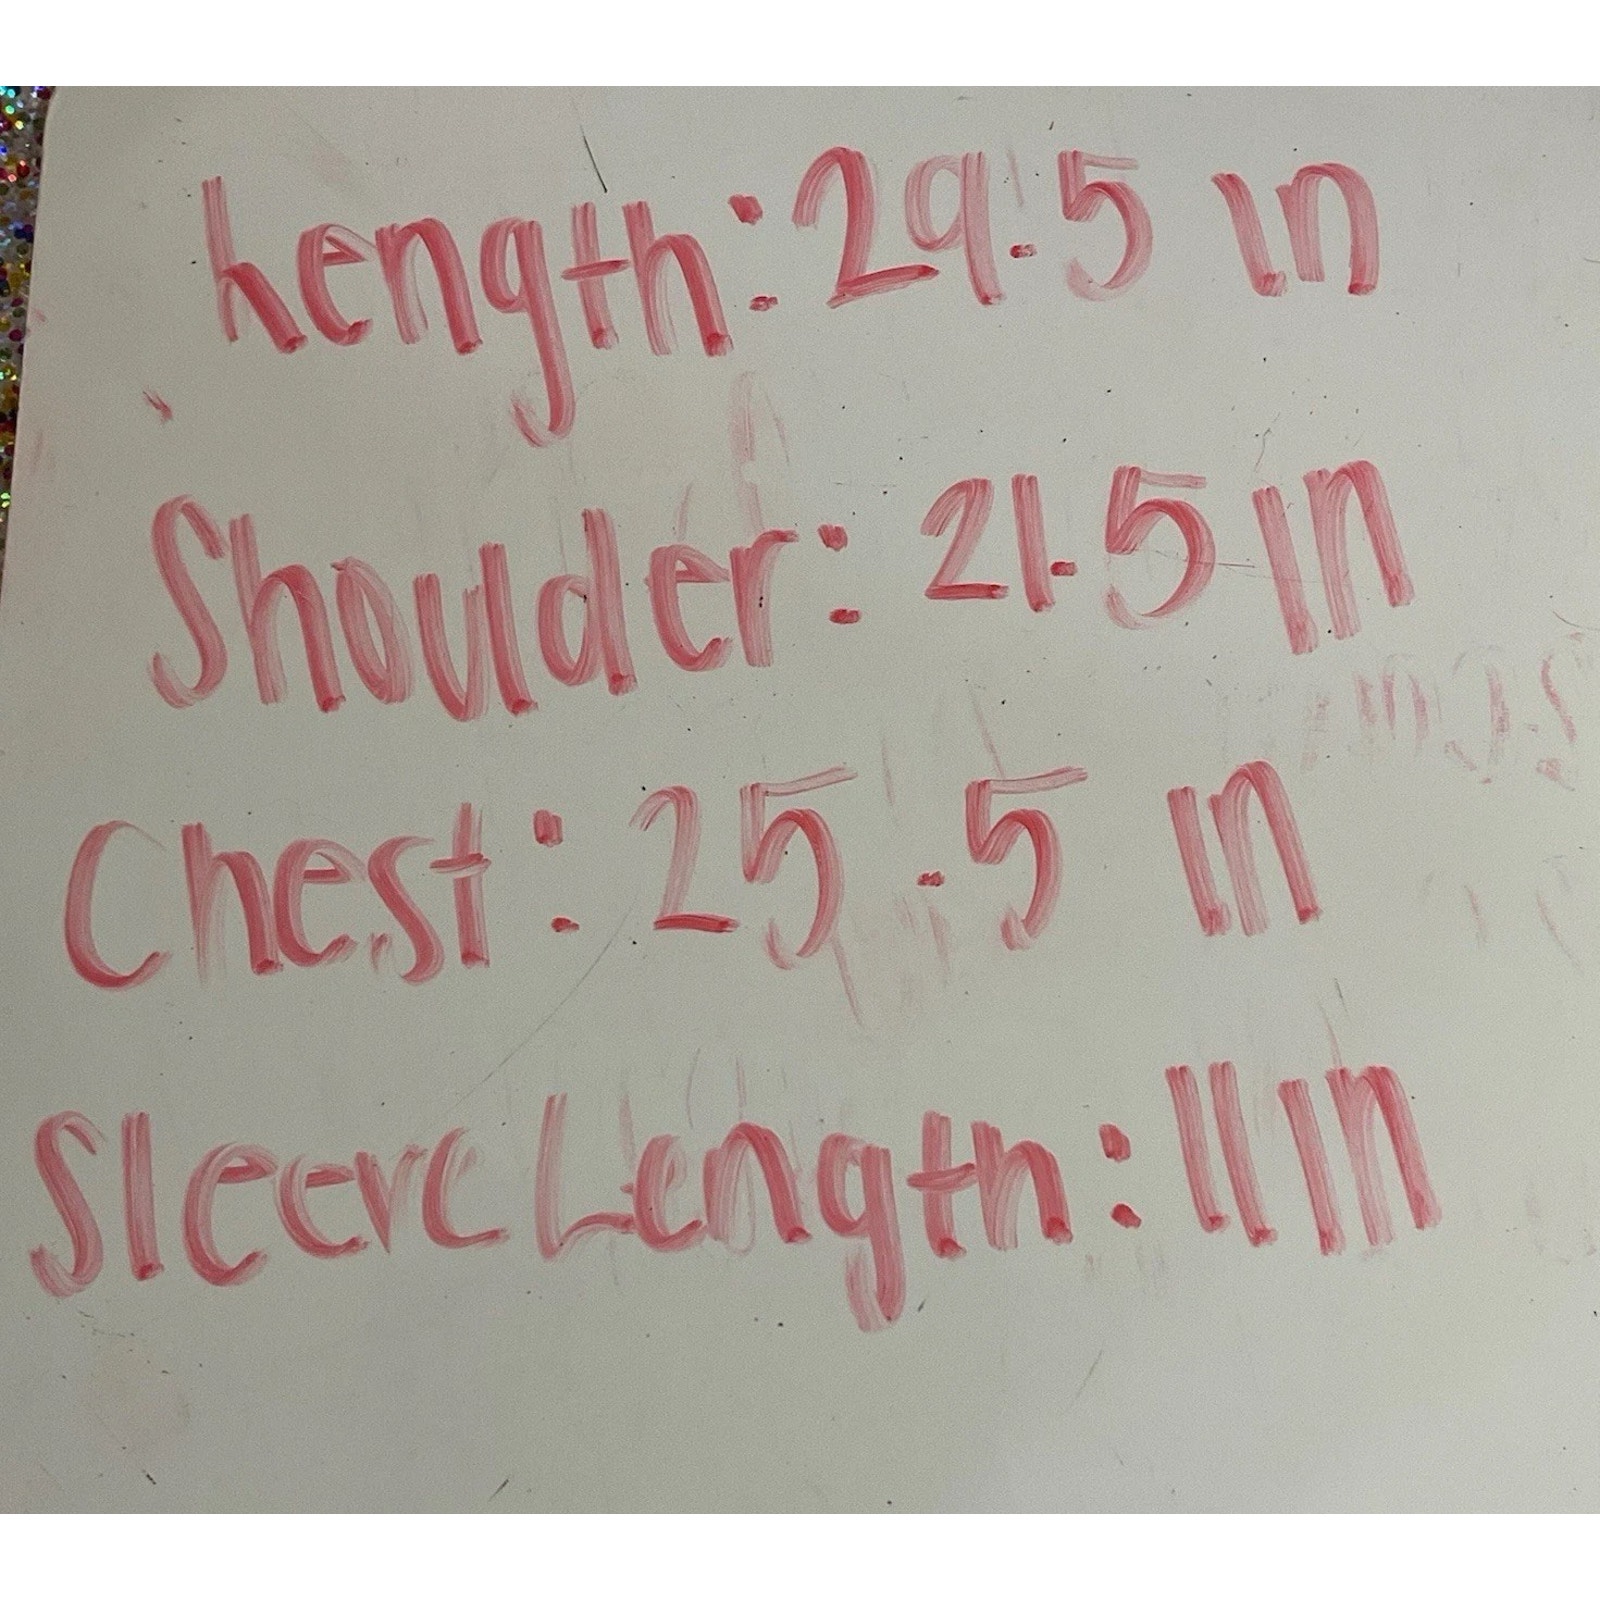 Length: 29.5 in
Shoulder: 21.5 in
Chest: 25.5 in
Sleeve Length: 11 in